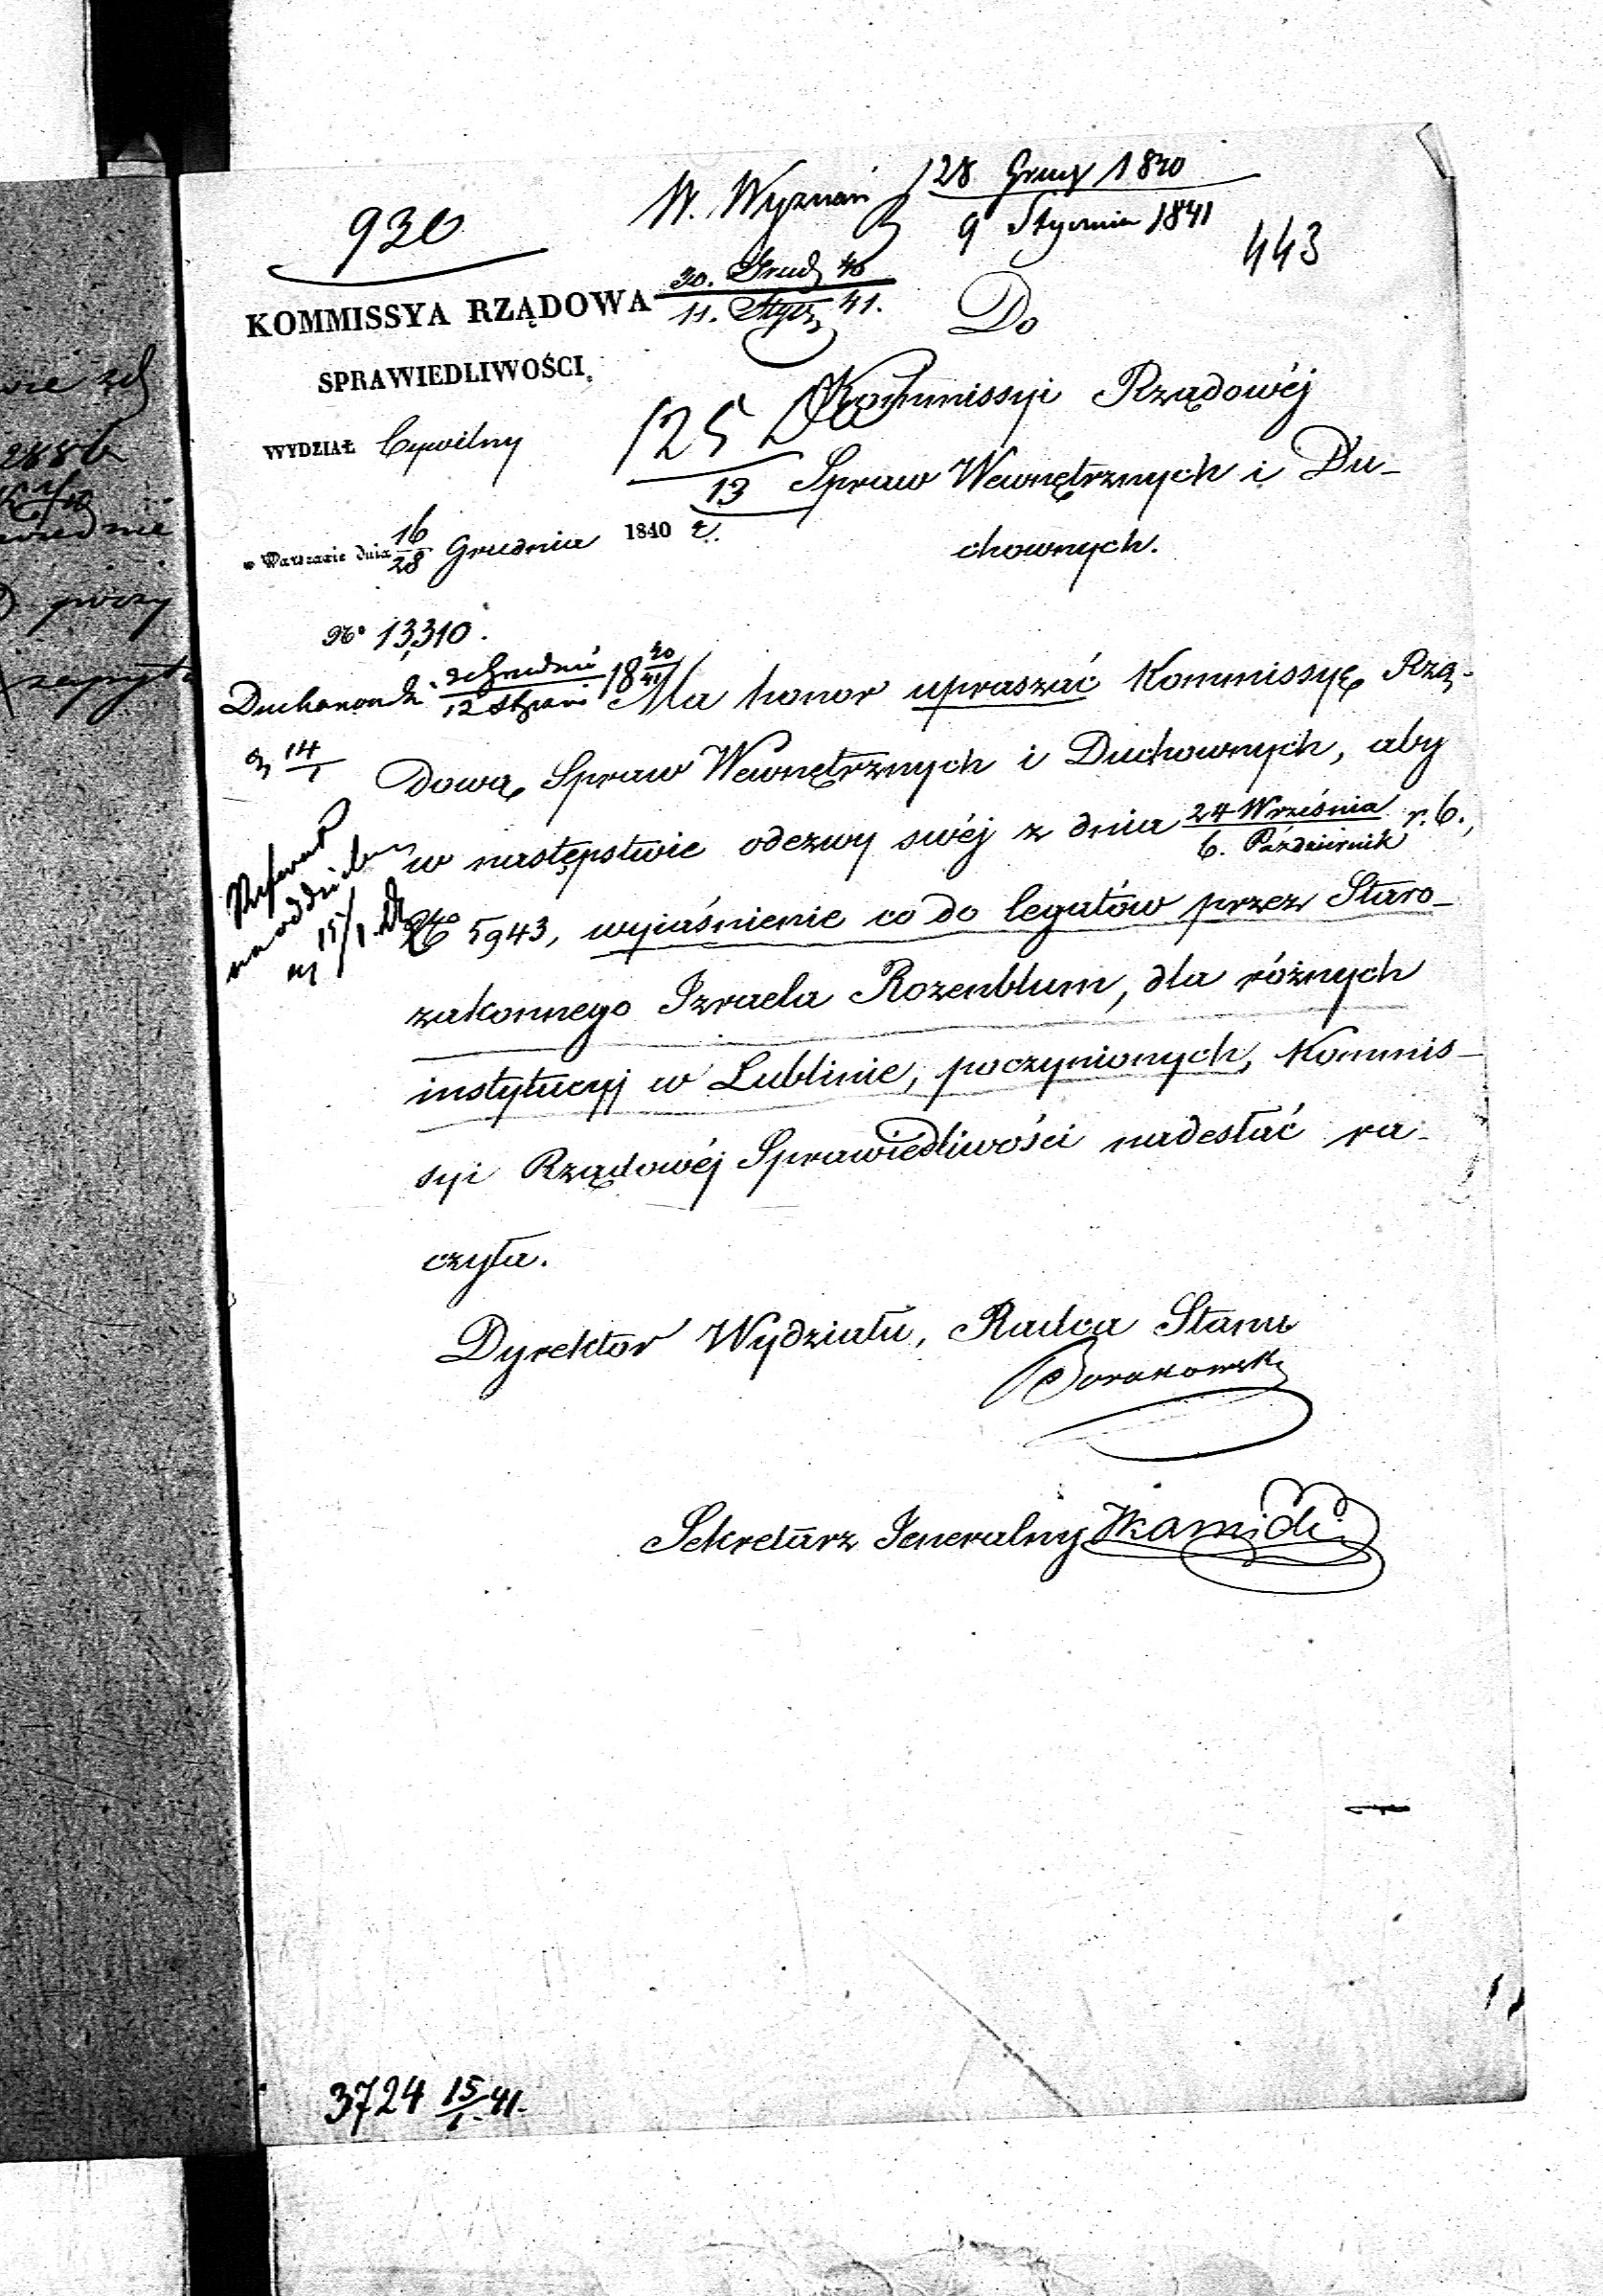 930
W. Wyznań 28 Grud 1840
9 Stycznia 1841
443
30. Grud 40
11. Stycz 41.
KOMMISSYA RZĄDOWA
SPRAWIEDLIWOŚCI
WYDZIAŁ Cywilny
w Warszawie dnia 16/28 Grudnia 1840 r.
№ 13,310.
125
13
Do
Kommissyi Rządowéj
Spraw Wewnętrznych i Du-
chownych.
12 18 40/41
14/1
15/1
Ma honor upraszać Kommissyę Rzą-
dową Spraw Wewnętrznych i Duchownych, aby
w następstwie odezwy swéj z dnia 24 Września / 6. Październik r. b.,
№ 5943, wyjaśnienie co do legatów przez Staro-
zakonnego Izraela Rozenblum, dla różnych
instytucyj w Lublinie, poczynionych, Kommis-
syi Rządowéj Sprawiedliwości nadesłać ra-
czyła.
Dyrektor Wydziału, Radca Stanu
Sekretarz Jeneralny
3724 15/1. 41.